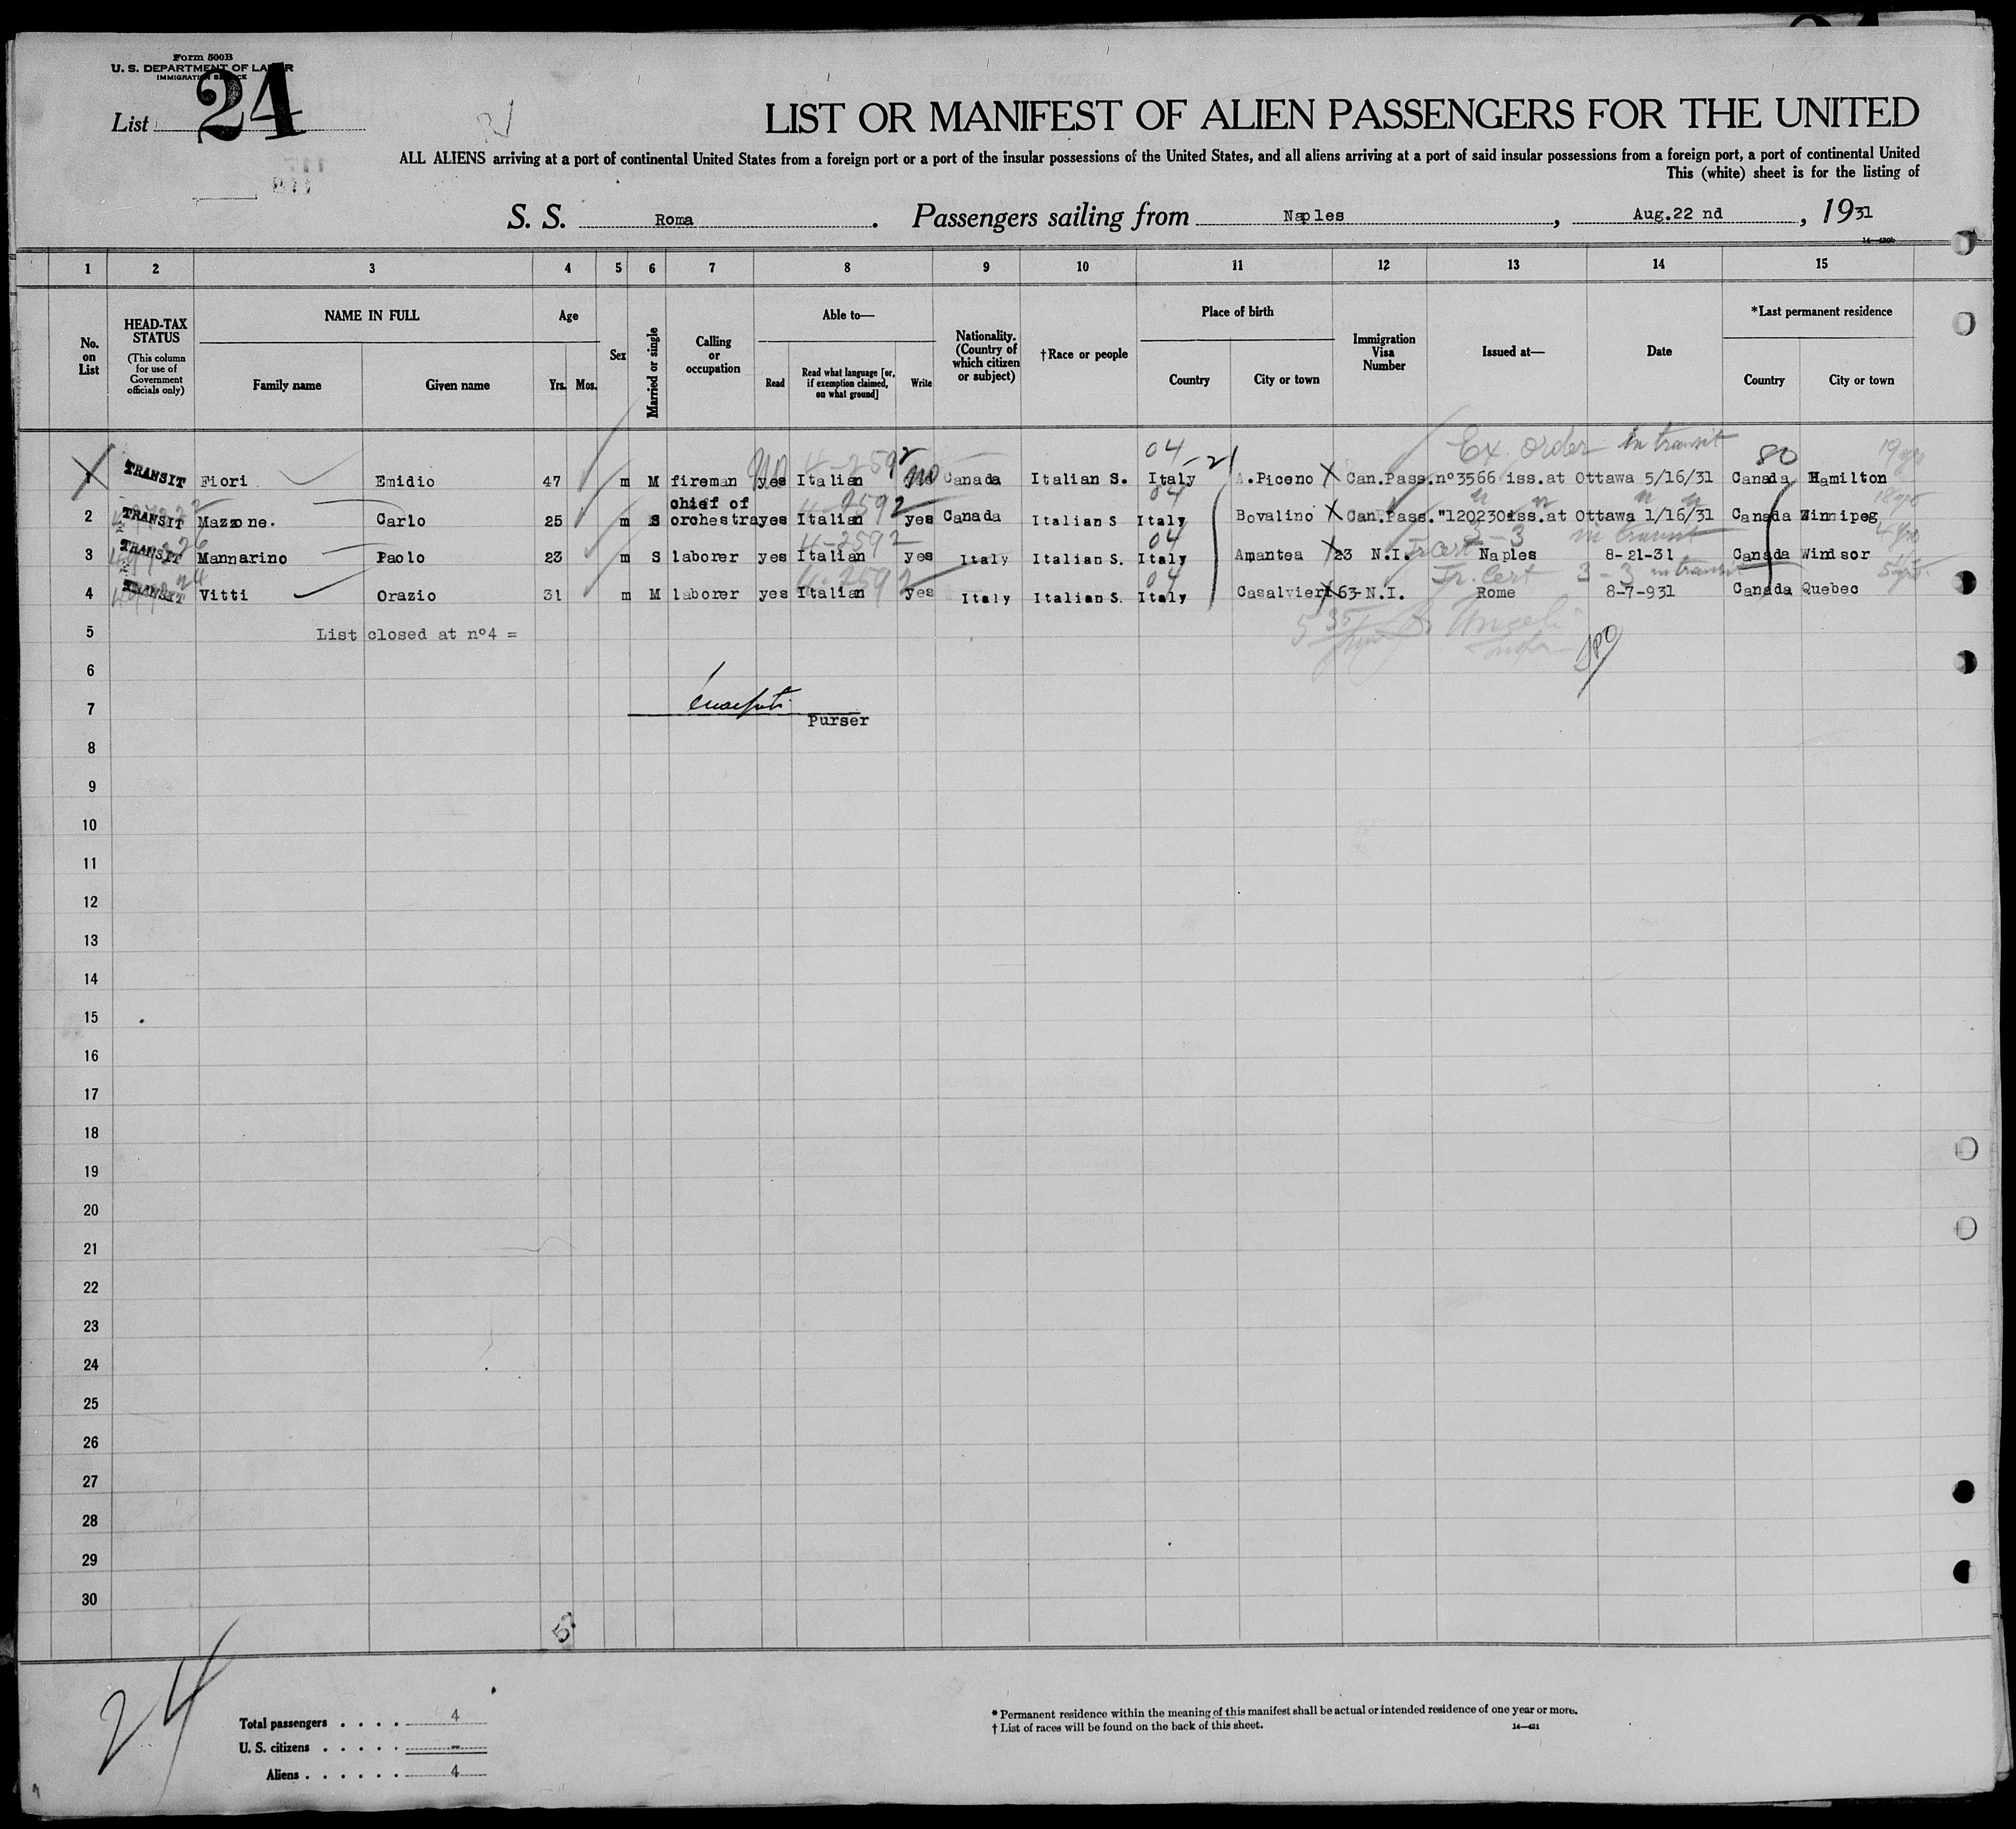 Form 500B
U. S. DEPARTMENT OF LABOR
IMMIGRATION SERVICE
List 24
LIST OR MANIFEST OF ALIEN PASSENGERS FOR THE UNITED
ALL ALIENS arriving at a port of continental United States from a foreign port or a port of the insular possessions of the United States, and all aliens arriving at a port of said insular possessions from a foreign port, a port of continental United
This (white) sheet is for the listing of
S. S. Roma. Passengers sailing from Naples, Aug.22 nd, 1931
14—420b
1 2 3 4 5 6 7 8 9 10 11 12 13 14 15
No. on List
HEAD-TAX STATUS (This column for use of Government officials only)
NAME IN FULL Family name Given name
Age Yrs. Mos.
Sex
Married or single
Calling or occupation
Able to— Read Read what language [or, if exemption claimed, on what ground] Write
Nationality. (Country of which citizen or subject)
†Race or people
Place of birth Country City or town
Immigration Visa Number
Issued at—
Date
*Last permanent residence Country City or town
04 Ex. order In transit 80 19 yrs
1 TRANSIT Fiori Emidio 47 m M fireman yes no Italian 4-2592 no Canada Italian S. Italy -21 A.Piceno X Can.Pass.nº3566 iss.at Ottawa 5/16/31 Canada Hamilton
chief of 4-2592 04 " " " " 18 yrs
2 TRANSIT Mazzone. Carlo 25 m S orchestra yes Italian yes Canada Italian S Italy Bovalino X Can.Pass."120230 iss.at Ottawa 1/16/31 Canada Winnipeg
4-2592 04 Tr cert 3-3 in transit 4 yrs
3 TRANSIT Mannarino Paolo 23 m S laborer yes Italian yes Italy Italian S. Italy Amantea X 23 N.I. Naples 8-21-31 Canada Windsor
4-2592 04 Tr. Cert 3-3 in transit 5 yrs.
4 TRANSIT Vitti Orazio 31 m M laborer yes Italian yes Italy Italian S. Italy Casalvieri X 63-N.I. Rome 8-7-931 Canada Quebec
5 List closed at nº4 =
6
7
Purser
8
9
10
11
12
13
14
15
16
17
18
19
20
21
22
23
24
25
26
27
28
29
30
24
Total passengers . . . . 4
U. S. citizens . . . . . -
Aliens . . . . . . 4
* Permanent residence within the meaning of this manifest shall be actual or intended residence of one year or more.
† List of races will be found on the back of this sheet.
14—421